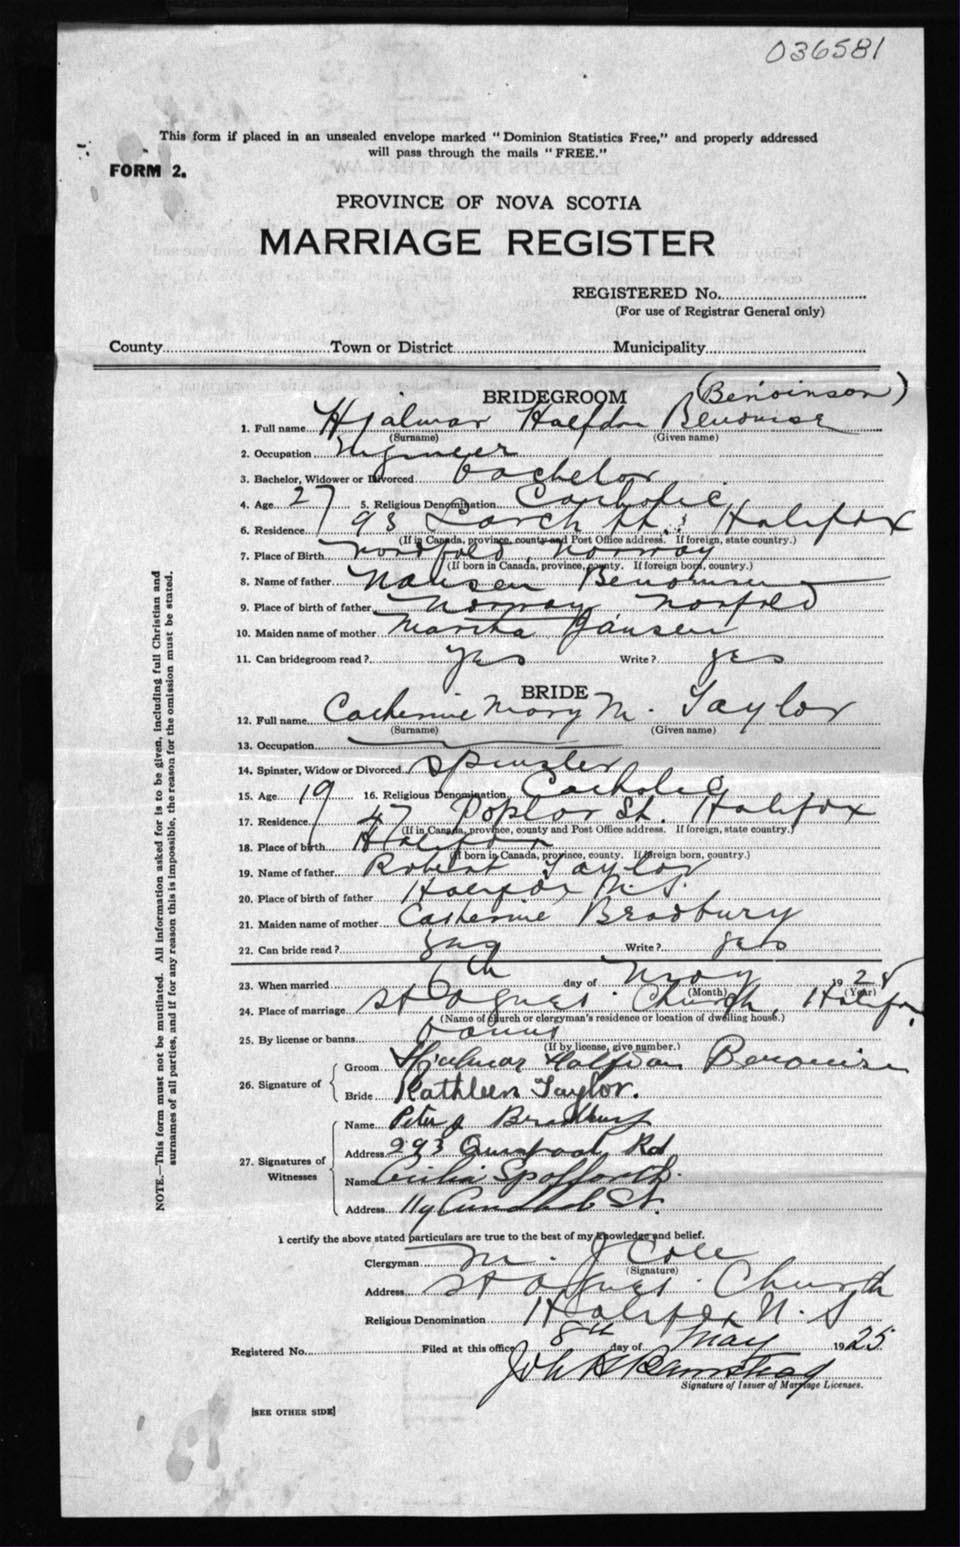 036581
This form if placed in an unsealed envelope marked "Dominion Statistics Free," and properly addressed
will pass through the mails "FREE."
FORM 2.
PROVINCE OF NOVA SCOTIA
MARRIAGE REGISTER
REGISTERED No.
(For use of Registrar General only)
County Town or District Municipality
BRIDEGROOM (Benoinson)
1. Full name Hjalmar Halfdan
(Surname) (Given name)
2. Occupation Engineer
3. Bachelor, Widower or Divorced bachelor
4. Age 27 5. Religious Denomination Catholic
6. Residence 93 Larch St. Halifax
(If in Canada, province, county and Post Office address. If foreign, state country.)
7. Place of Birth Norway
(If born in Canada, province, county. If foreign born, country.)
8. Name of father Hansen
9. Place of birth of father Norway
10. Maiden name of mother Martha Jansen
11. Can bridegroom read? yes Write? yes
BRIDE
12. Full name Catherine Mary M. Taylor
(Surname) (Given name)
13. Occupation
14. Spinster, Widow or Divorced Spinster
15. Age 19 16. Religious Denomination Catholic
17. Residence 47 Poplar St. Halifax
(If in Canada, province, county and Post Office address. If foreign, state country.)
18. Place of birth Halifax
(If born in Canada, province, county. If foreign born, country.)
19. Name of father Robert Taylor
20. Place of birth of father Halifax N.S.
21. Maiden name of mother Catherine Bradbury
22. Can bride read? yes Write? yes
23. When married 6th day of May 192
(Month) (Year)
24. Place of marriage St Agnes Church, Halifax
(Name of church or clergyman's residence or location of dwelling house.)
25. By license or banns banns
(If by license, give number.)
26. Signature of
Groom Hjalmar Halfdan
Bride Kathleen Taylor.
27. Signatures of Witnesses
Name Peter J Bradbury
Address 293 Quinpool Rd
Name Cecilia Spofforth.
Address St.
I certify the above stated particulars are true to the best of my knowledge and belief.
Clergyman M. J Cole
(Signature)
Address St Agnes Church
Religious Denomination Halifax N. S
Registered No. Filed at this office 8th day of May 1925
John
Signature of Issuer of Marriage Licenses.
[SEE OTHER SIDE]
NOTE.—This form must not be mutilated. All information asked for is to be given, including full Christian and
surnames of all parties, and if for any reason this is impossible, the reason for the omission must be stated.